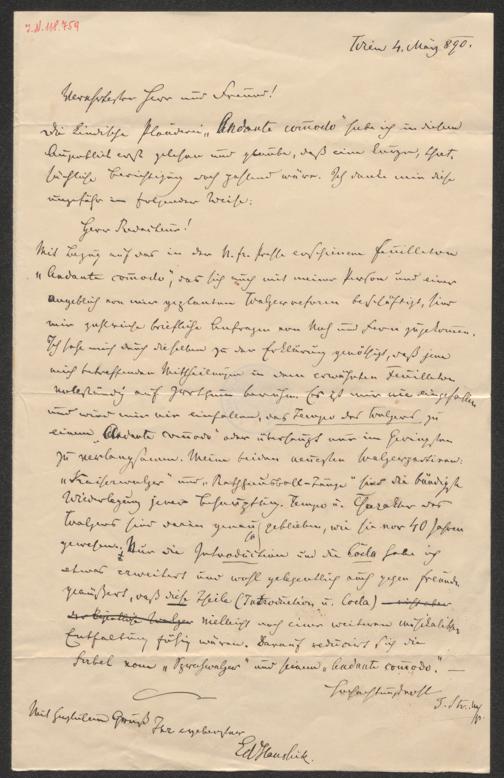 I.N. 118.759
Wien 4. März 890.
Verehrtester Herr und Freund!
Die kindische Plauderei „Andante comodo" habe ich in diesem
Augenblick erst gelesen und glaube, daß eine kurze, that-
sächliche Berichtigung noch passend wäre. Ich denke mir diese
ungefähr in folgender Weise:
Herr Redacteur!
Mit Bezug auf das in der N. fr. Presse erschienene Feuilleton
„Andante comodo", das sich auch mit meiner Person und einer
angeblich von mir geplanten Walzerreform beschäftigt, sind
mir zahlreiche briefliche Anfragen von Nah und Fern zugekommen.
Ich sehe mich durch dieselben zu der Erklärung genöthigt, daß jene
mich betreffenden Mittheilungen in dem erwähnten Feuilleton
vollständig auf Irrthum beruhen. Es ist mir nie eingefallen
und wird mir nie einfallen, das Tempo des Walzers zu
einem „Andante comodo" oder überhaupt nur im Geringsten
zu verlangsamen. Meine beiden neuesten Walzerpartieen
„Kaiserwalzer" und „Rathhausball-Tänze" sind die bündigste
Widerlegung jener Behauptung. Tempo u. Charakter des
Walzers sind darin genau so geblieben, wie sie vor 40 Jahren
gewesen. Nur die Introduction und die Coda habe ich
etwas erweitert und wohl gelegentlich auch gegen Freunde
geäußert, daß diese Theile (Introduction u. Coda) nicht aber
der eigentliche Walzer vielleicht noch einer weiteren musikalischen
Entfaltung fähig wären. Darauf reducirt sich die
Fabel vom „Sprechwalzer" und seinem „Andante comodo". —
Hochachtungsvoll
J. Str.
Mit herzlichem Gruß
Ihr ergebenster
Ed Hanslick.